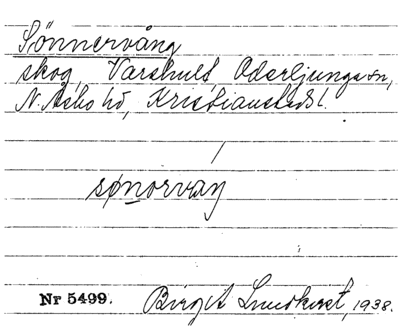 Sönnervång
skog, Varshult, Oderljunga sn,
N. Åsbo hd, Kristianstads l.
sønorvaŋ
Nr 5499. Birgit Lundkvist, 1938.